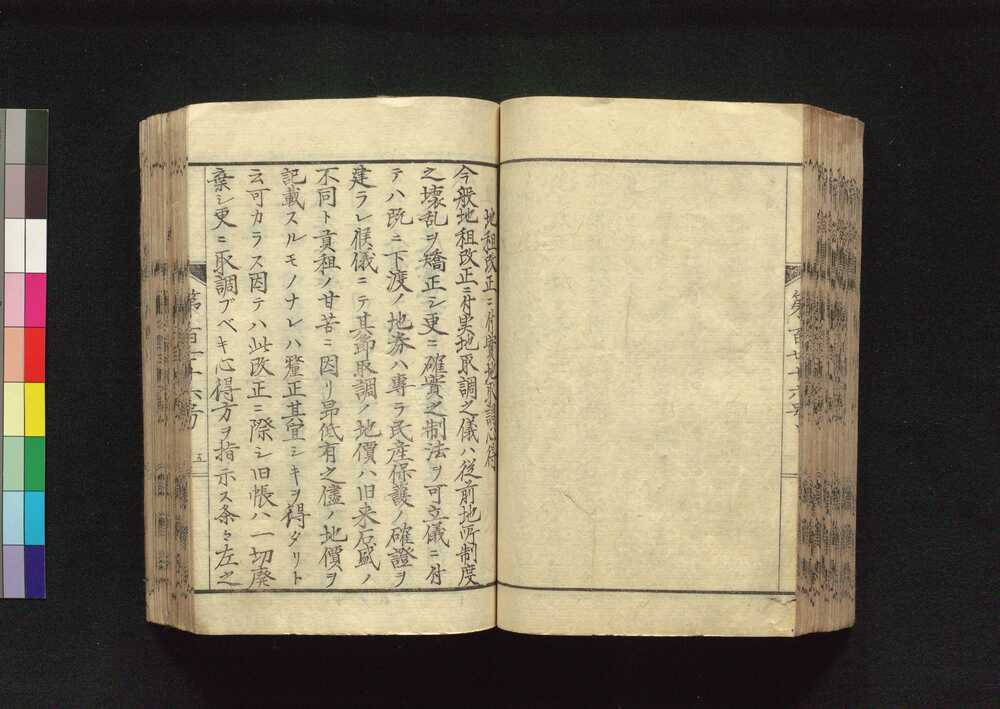 第百廿六号
地租改正ニ付實地取調心得
今般地租改正ニ付実地取調之儀ハ従前地所制度
之壊乱ヲ矯正シ更ニ確實之制法ヲ可立儀ニ付
テハ既ニ下渡ノ地券ハ専ラ民産保護ノ確證ヲ
建ラレ候儀ニテ其節取調ノ地價ハ旧来石盛ノ
不同ト貢租ノ甘苦ニ因リ昂低有之儘ノ地價ヲ
記載スルモノナレハ釐正其宜シキヲ得タリト
云可カラス因テハ此改正ニ際シ旧帳ハ一切廃
棄シ更ニ取調ブベキ心得方ヲ指示ス条々左之
第百廿六号
五